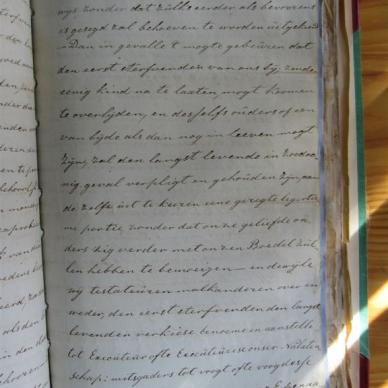 wijs zonder dat zulks eerder als bevorens
is gesegd zal behoeven te worden uitgekeerd
Dan in gevalle 't mogte gebeuren dat
den eerst sterfvenden van ons bij zonder
eenig kind na te laaten, mogt komen
te overlijden, en desselfs ouders of een
van bijde als dan nog in leeven mogt
zijn, zal den langst levende in zodaa
nig geval verpligt en gehouden zijn, aan
de zelfe uit te keeren eene geregte legitie
me portie, zonder dat onze geliefde ou
ders zig verder met onzen Boedel zul
len hebben te bemoeijen en dewijle
wij testateuren malkanderen over en
weder, den eerst sterfvenden den langst
levenden verkiese benoeme en aanstelle
tot Executeur ofte Executrice onser Nalaten
schap; mitsgaders tot voogt ofte voogdesse